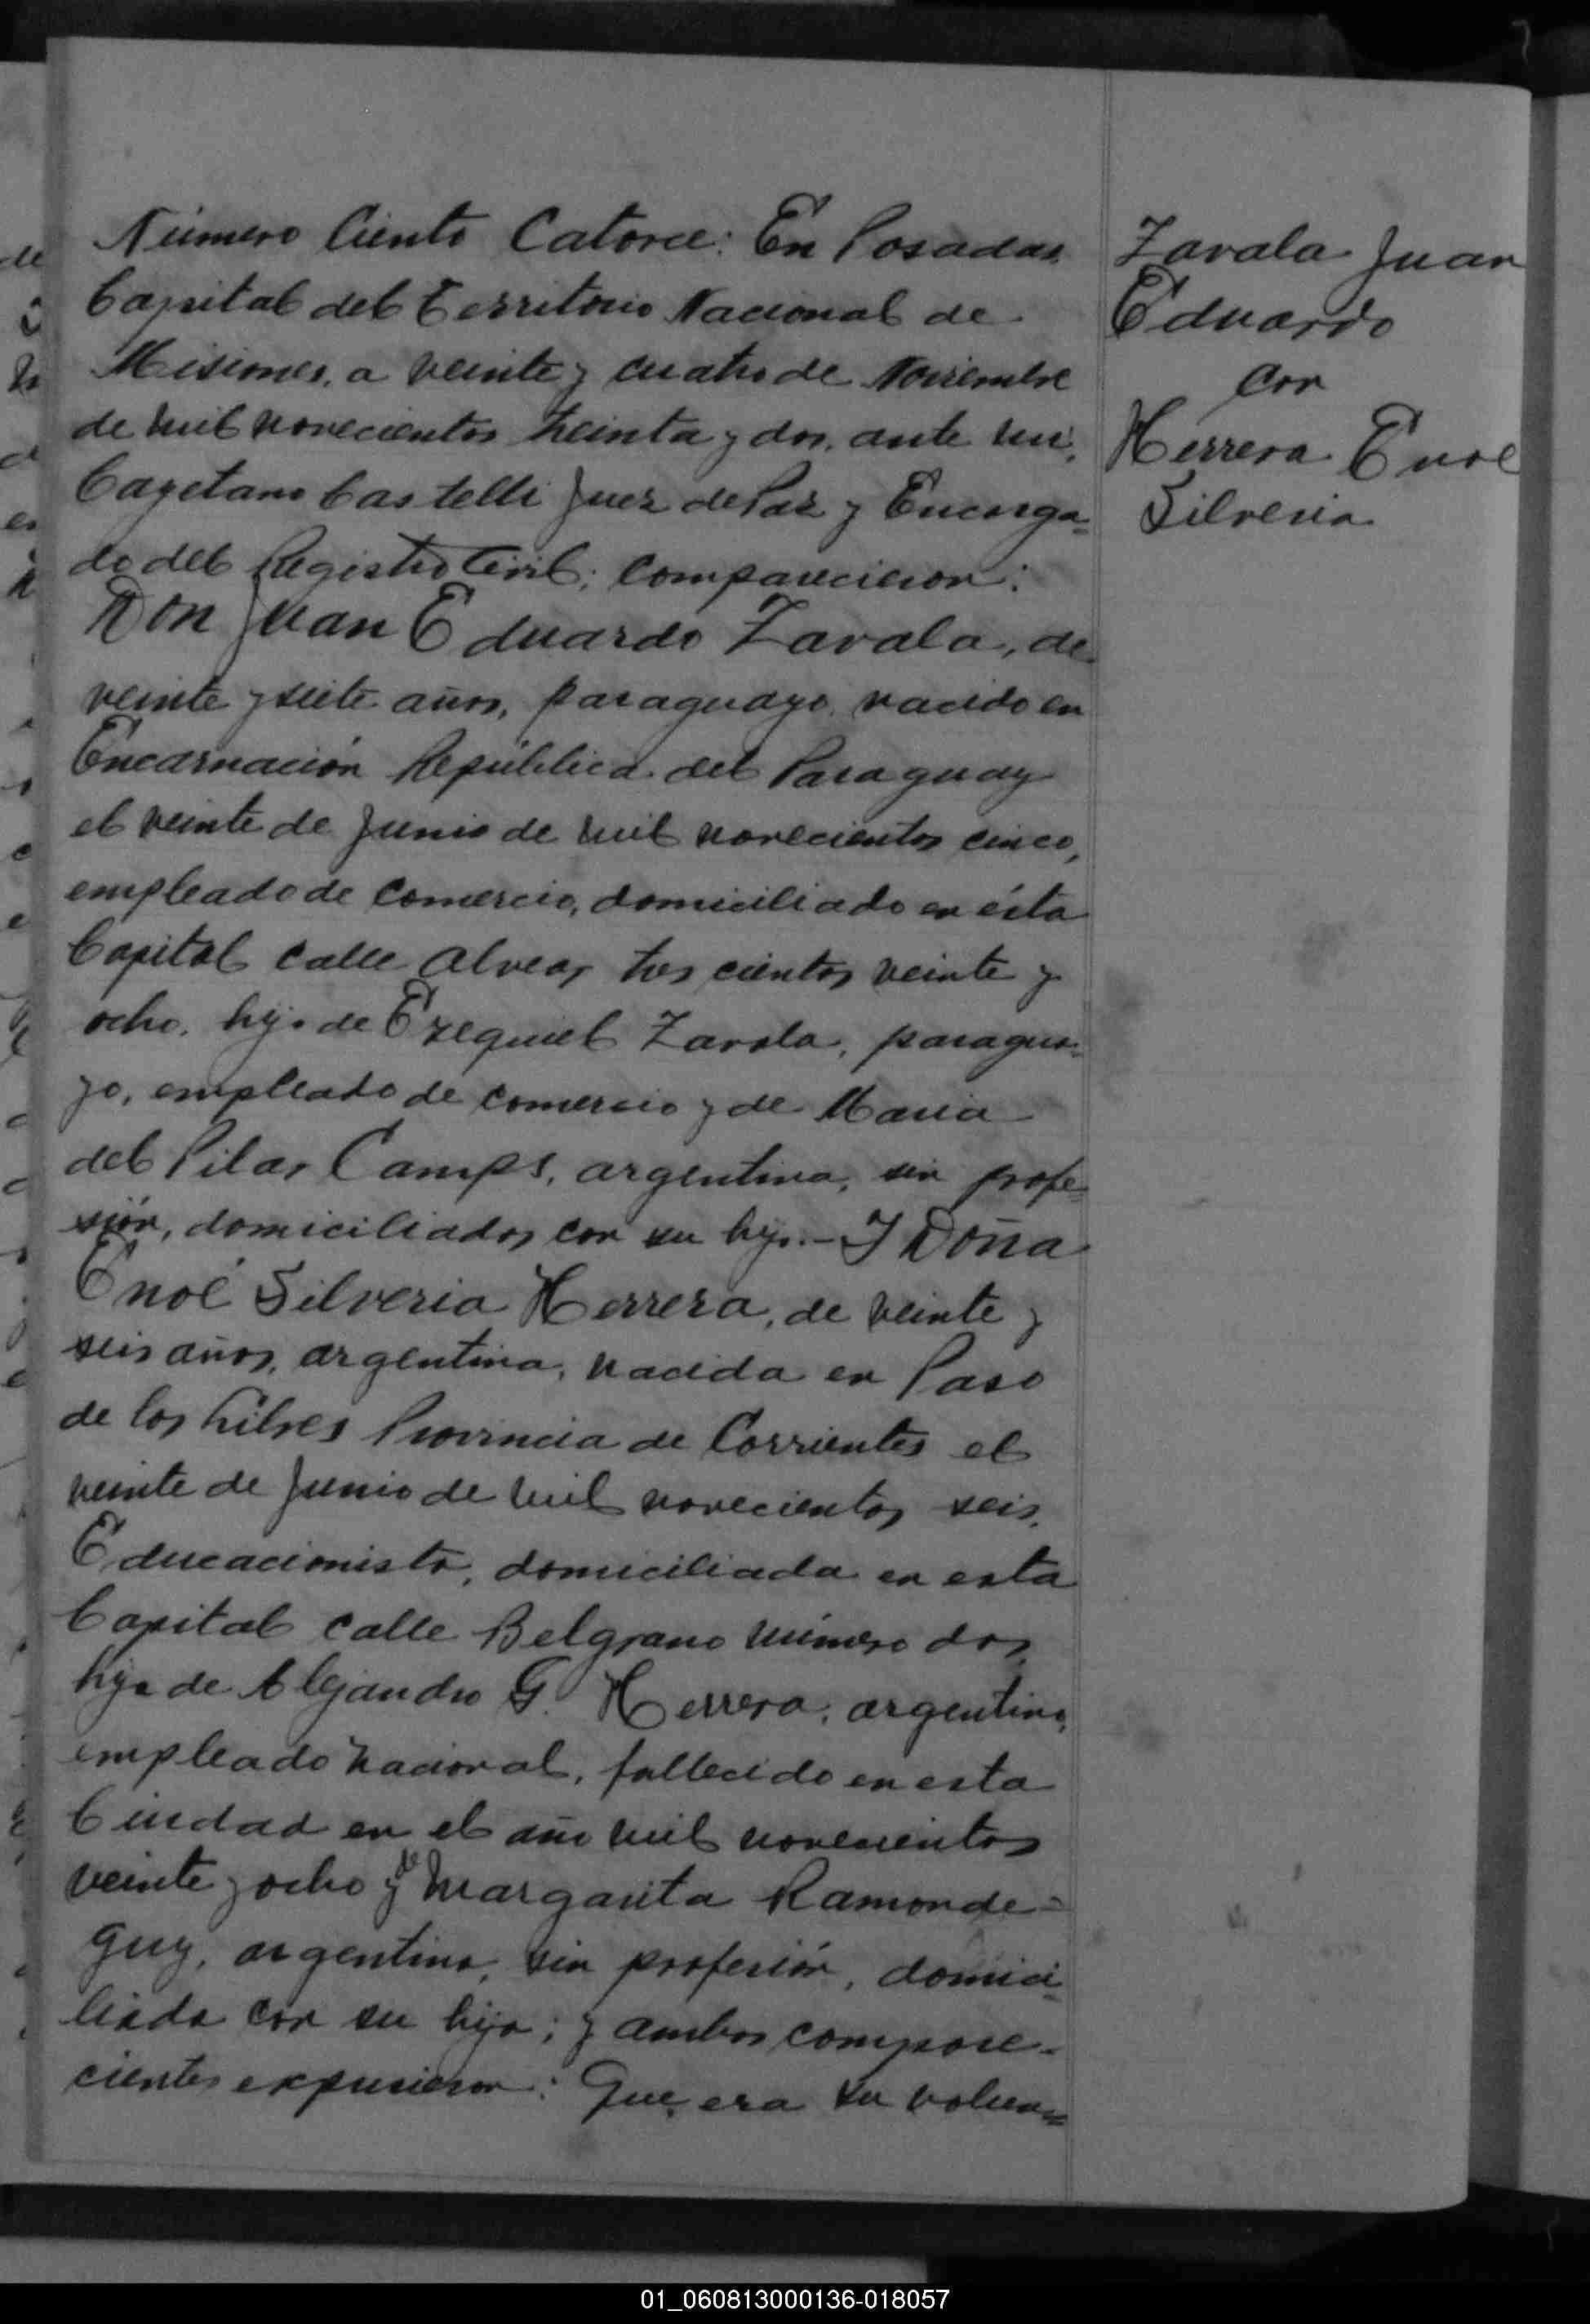 Número Ciento Catorce: En Posadas
Capital del Territorio Nacional de
Misiones, a veinte y cuatro de Noviembre
de mil novecientos treinta y dos, ante mi,
Cayetano Castelli Juez de Paz y Encarga=
do del Registro Civil; comparecieron:
Don Juan Eduardo Zavala, de
veinte y siete años, paraguayo, nacido en
Encarnación República del Paraguay
el veinte de Junio de mil novecientos cinco,
empleado de comercio, domiciliado en ésta
Capital calle Alvear tres cientos veinte y
ocho, hijo de Ezequiel Zavala, paragua=
yo, empleado de comercio y de Maria
del Pilar Camps, argentina, sin profe=
sión, domiciliados con su hijo.- Y Doña
Enoé Silveria Herrera, de veinte y
seis años, argentina, nacida en Paso
de los Libres Provincia de Corrientes el
veinte de Junio de mil novecientos seis,
Educacionista, domiciliada en esta
Capital calle Belgrano número dos,
hija de Alejandro G. Herrera, argentino,
empleado nacional, fallecido en esta
Ciudad en el año mil novecientos
veinte y ocho y de Margarita Ramonde=
guy, argentina, sin profesión, domici=
liada con su hija; y ambos compare=
cientes expusieron: Que era su volun=
Zavala Juan
Eduardo
con
Herrera Enoe
Silveria
01_060813000136-018057